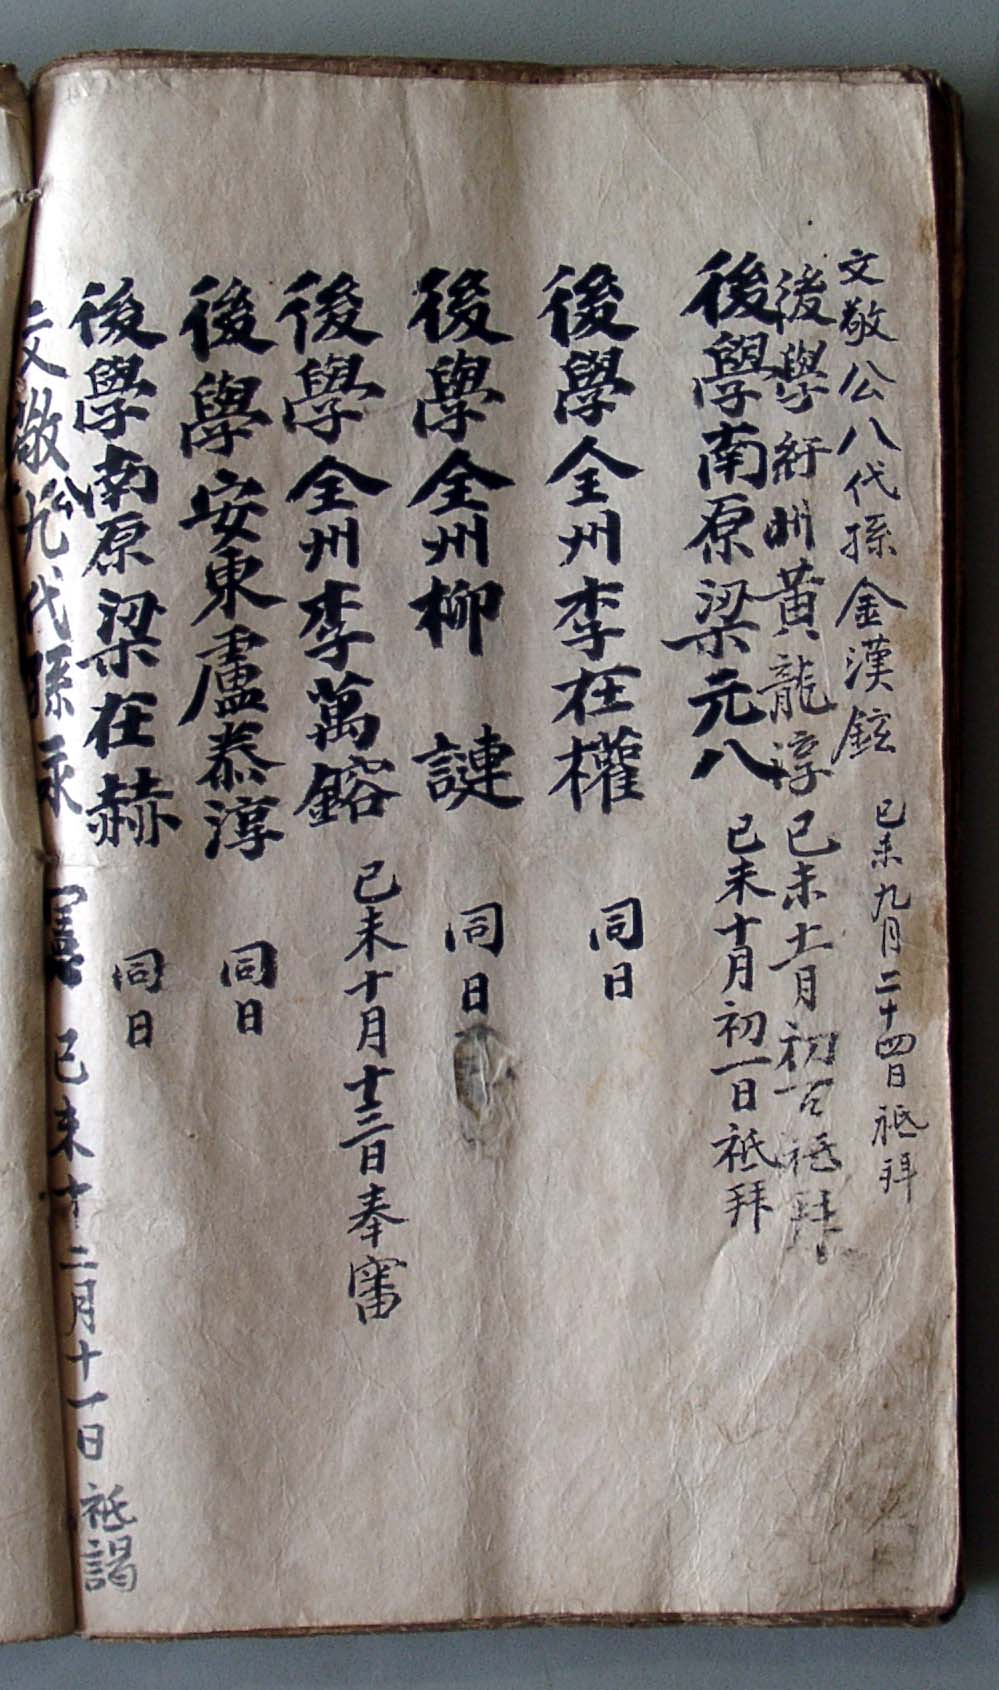 文敬公八代孫金漢鉉 已未九月二十四日祗拜
後學紆州黃龍淳 已未十一月初一日祗拜
後學南原梁元八 已未十月初一日祗拜
後學全州李在權 同日
後學全州柳 謰 同日
後學全州李萬鎔 已未十月十三日奉審
後學安東盧泰淳 同日
後學南原梁在赫 同日
文敬公九代孫永憲 已未十二月十一日祗謁